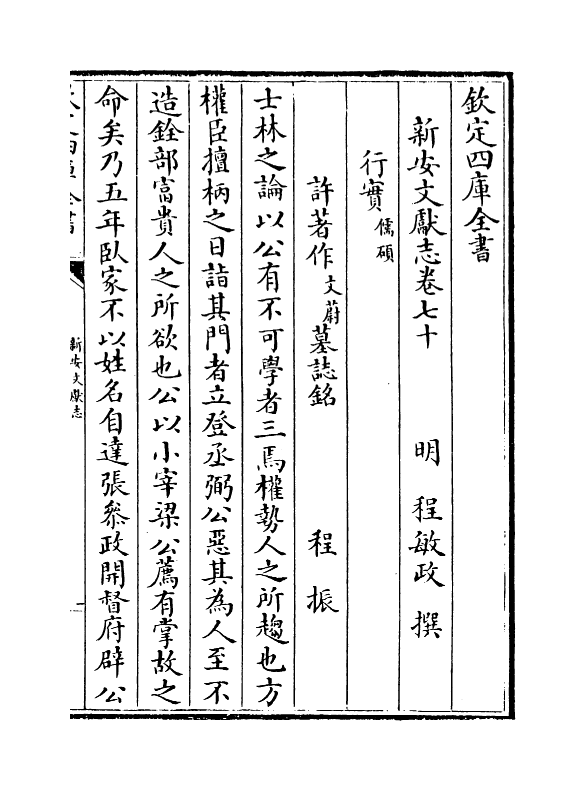 欽定四庫全書
新安文獻志卷七十 明 程敏政 撰
行實 儒碩
許著作文蔚墓誌銘 程振
士林之論以公有不可學者三焉權勢人之所趨也方
權臣擅柄之日詣其門者立登丞弼公惡其為人至不
造銓部富貴人之所欲也公以小宰梁公薦有掌故之
命矣乃五年臥家不以姓名自達張叅政開督府辟公
新安文獻志